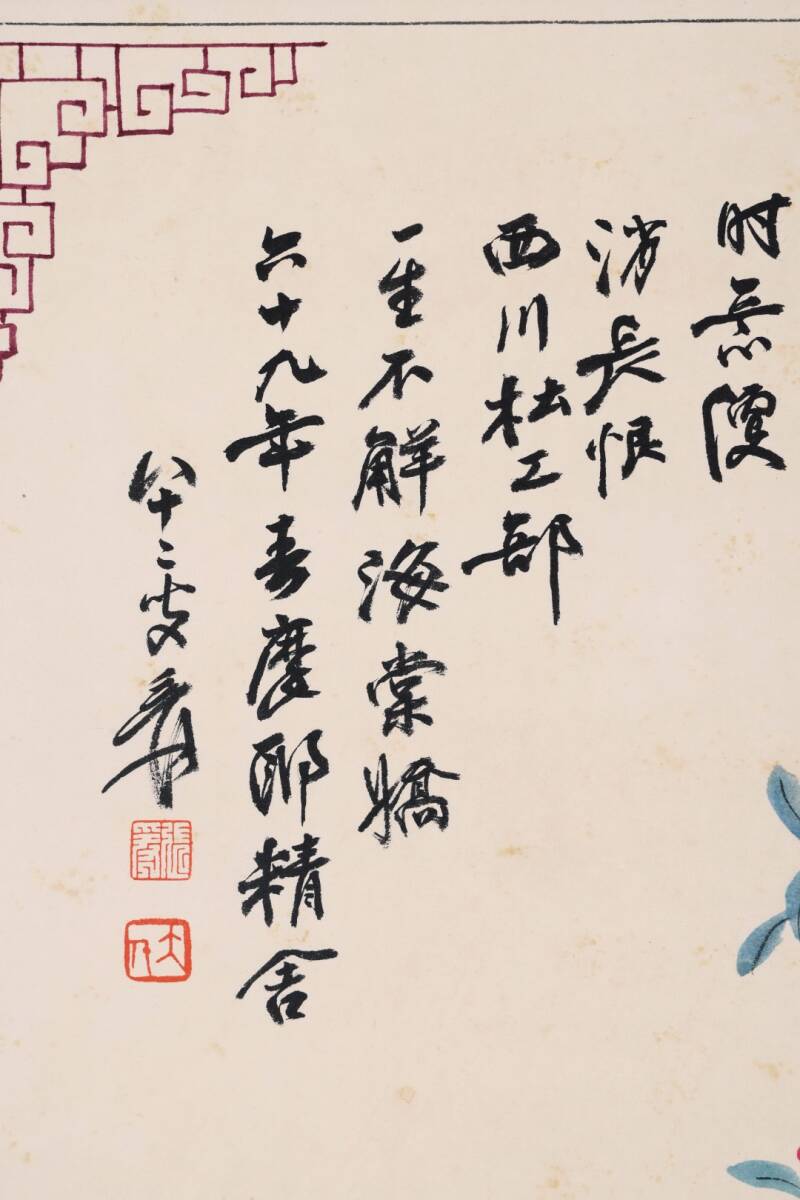 时
消長恨
西川杜工部
一生不解海棠嬌
六十九年春摩耶精舍
八十二叟爰
張爰
大千